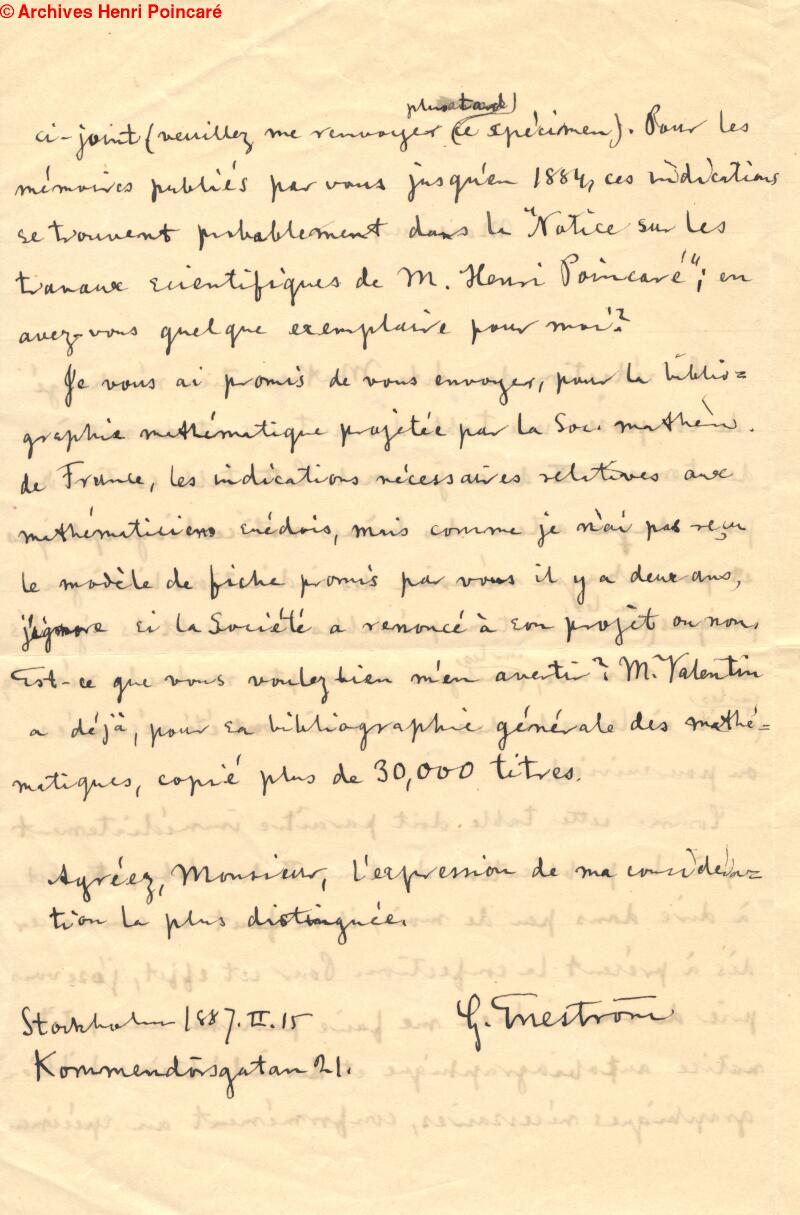 © Archives Henri Poincaré
plus tard
ci-joint (veuillez me renvoyer ce spécimen). Pour les
mémoires publiés par vous jusqu'en 1884, ces indications
se trouvent probablement dans la "Notice sur les
travaux scientifiques de M. Henri Poincaré"; en
avez-vous quelque exemplaire pour moi?
Je vous ai promis de vous envoyer, pour la biblio=
graphie mathématique projetée par la Soc. mathém.
de France, les indications nécessaires relatives aux
mathématiciens suédois, mais comme je n'ai pas reçu
le modèle de fiche promis par vous il y a deux ans,
j'ignore si la Société a renoncé à son projet ou non.
Est-ce que vous voulez bien m'en avertir? M. Valentin
a déjà, pour sa bibliographie générale des mathé=
matiques, copié plus de 30,000 titres.
Agréez, Monsieur, l'expression de ma considéra=
tion la plus distinguée.
Stockholm 1887.II.15
G. Eneström
Kommendörsgatan 21.